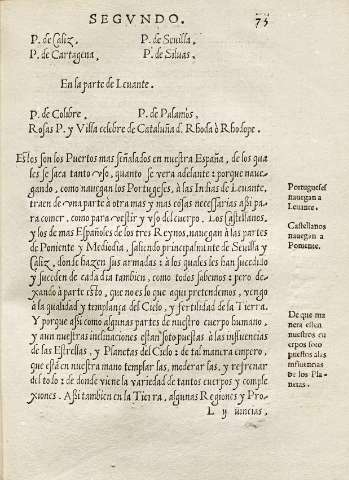 SEGVNDO. 75
P. de Caliz. P. de Seuilla.
P. de Cartagena. P. de Siluas.
En la parte de Leuante.
P. de Colibre. P. de Palamos.
Rosas P. y Villa celebre de Cataluña d. Rhoda ò Rhodope.
Estos son los Puertos mas señalados en nuestra España, de los qua
les se saca tanto vso, quanto se vera adelante: porque naue-
gando, como nauegan los Portugeses, à las Indias de Leuante,
traen de vna parte à otra mas y mas cosas necessarias assi pa
ra comer, como para vestir y vso del cuerpo. Los Castellanos,
y los de mas Españoles de los tres Reynos, nauegan à las partes
de Poniente y Mediodia, saliendo principalmente de Seuilla y
Caliz, donde hazen sus armadas: à los quales les han sucedido
y suceden de cada dia tambien, como todos sabemos: pero de-
xando à parte esto, que no es lo que aqui pretendemos, vengo
à la qualidad y templança del Cielo, y fertilidad de la Tierra.
Y porque assi como algunas partes de nuestro cuerpo humano,
y aun nuestras inclinaciones estan sotopuestas à las influencias
de las Estrellas, y Planetas del Cielo: de tal manera empero,
que està en nuestra mano templar las, moderar las, y refrenar
del todo: de donde viene la variedad de tantos cuerpos y comple
xiones. Assi tambien en la Tierra, algunas Regiones y Pro-
L ij uincias,
Portugueses
nauegan a
Leuante.
Castellanos
nauegan a
Poniente.
De que ma
nera esten
nuestros cu
erpos soto
puestos a las
influencias
de los Pla-
netas.